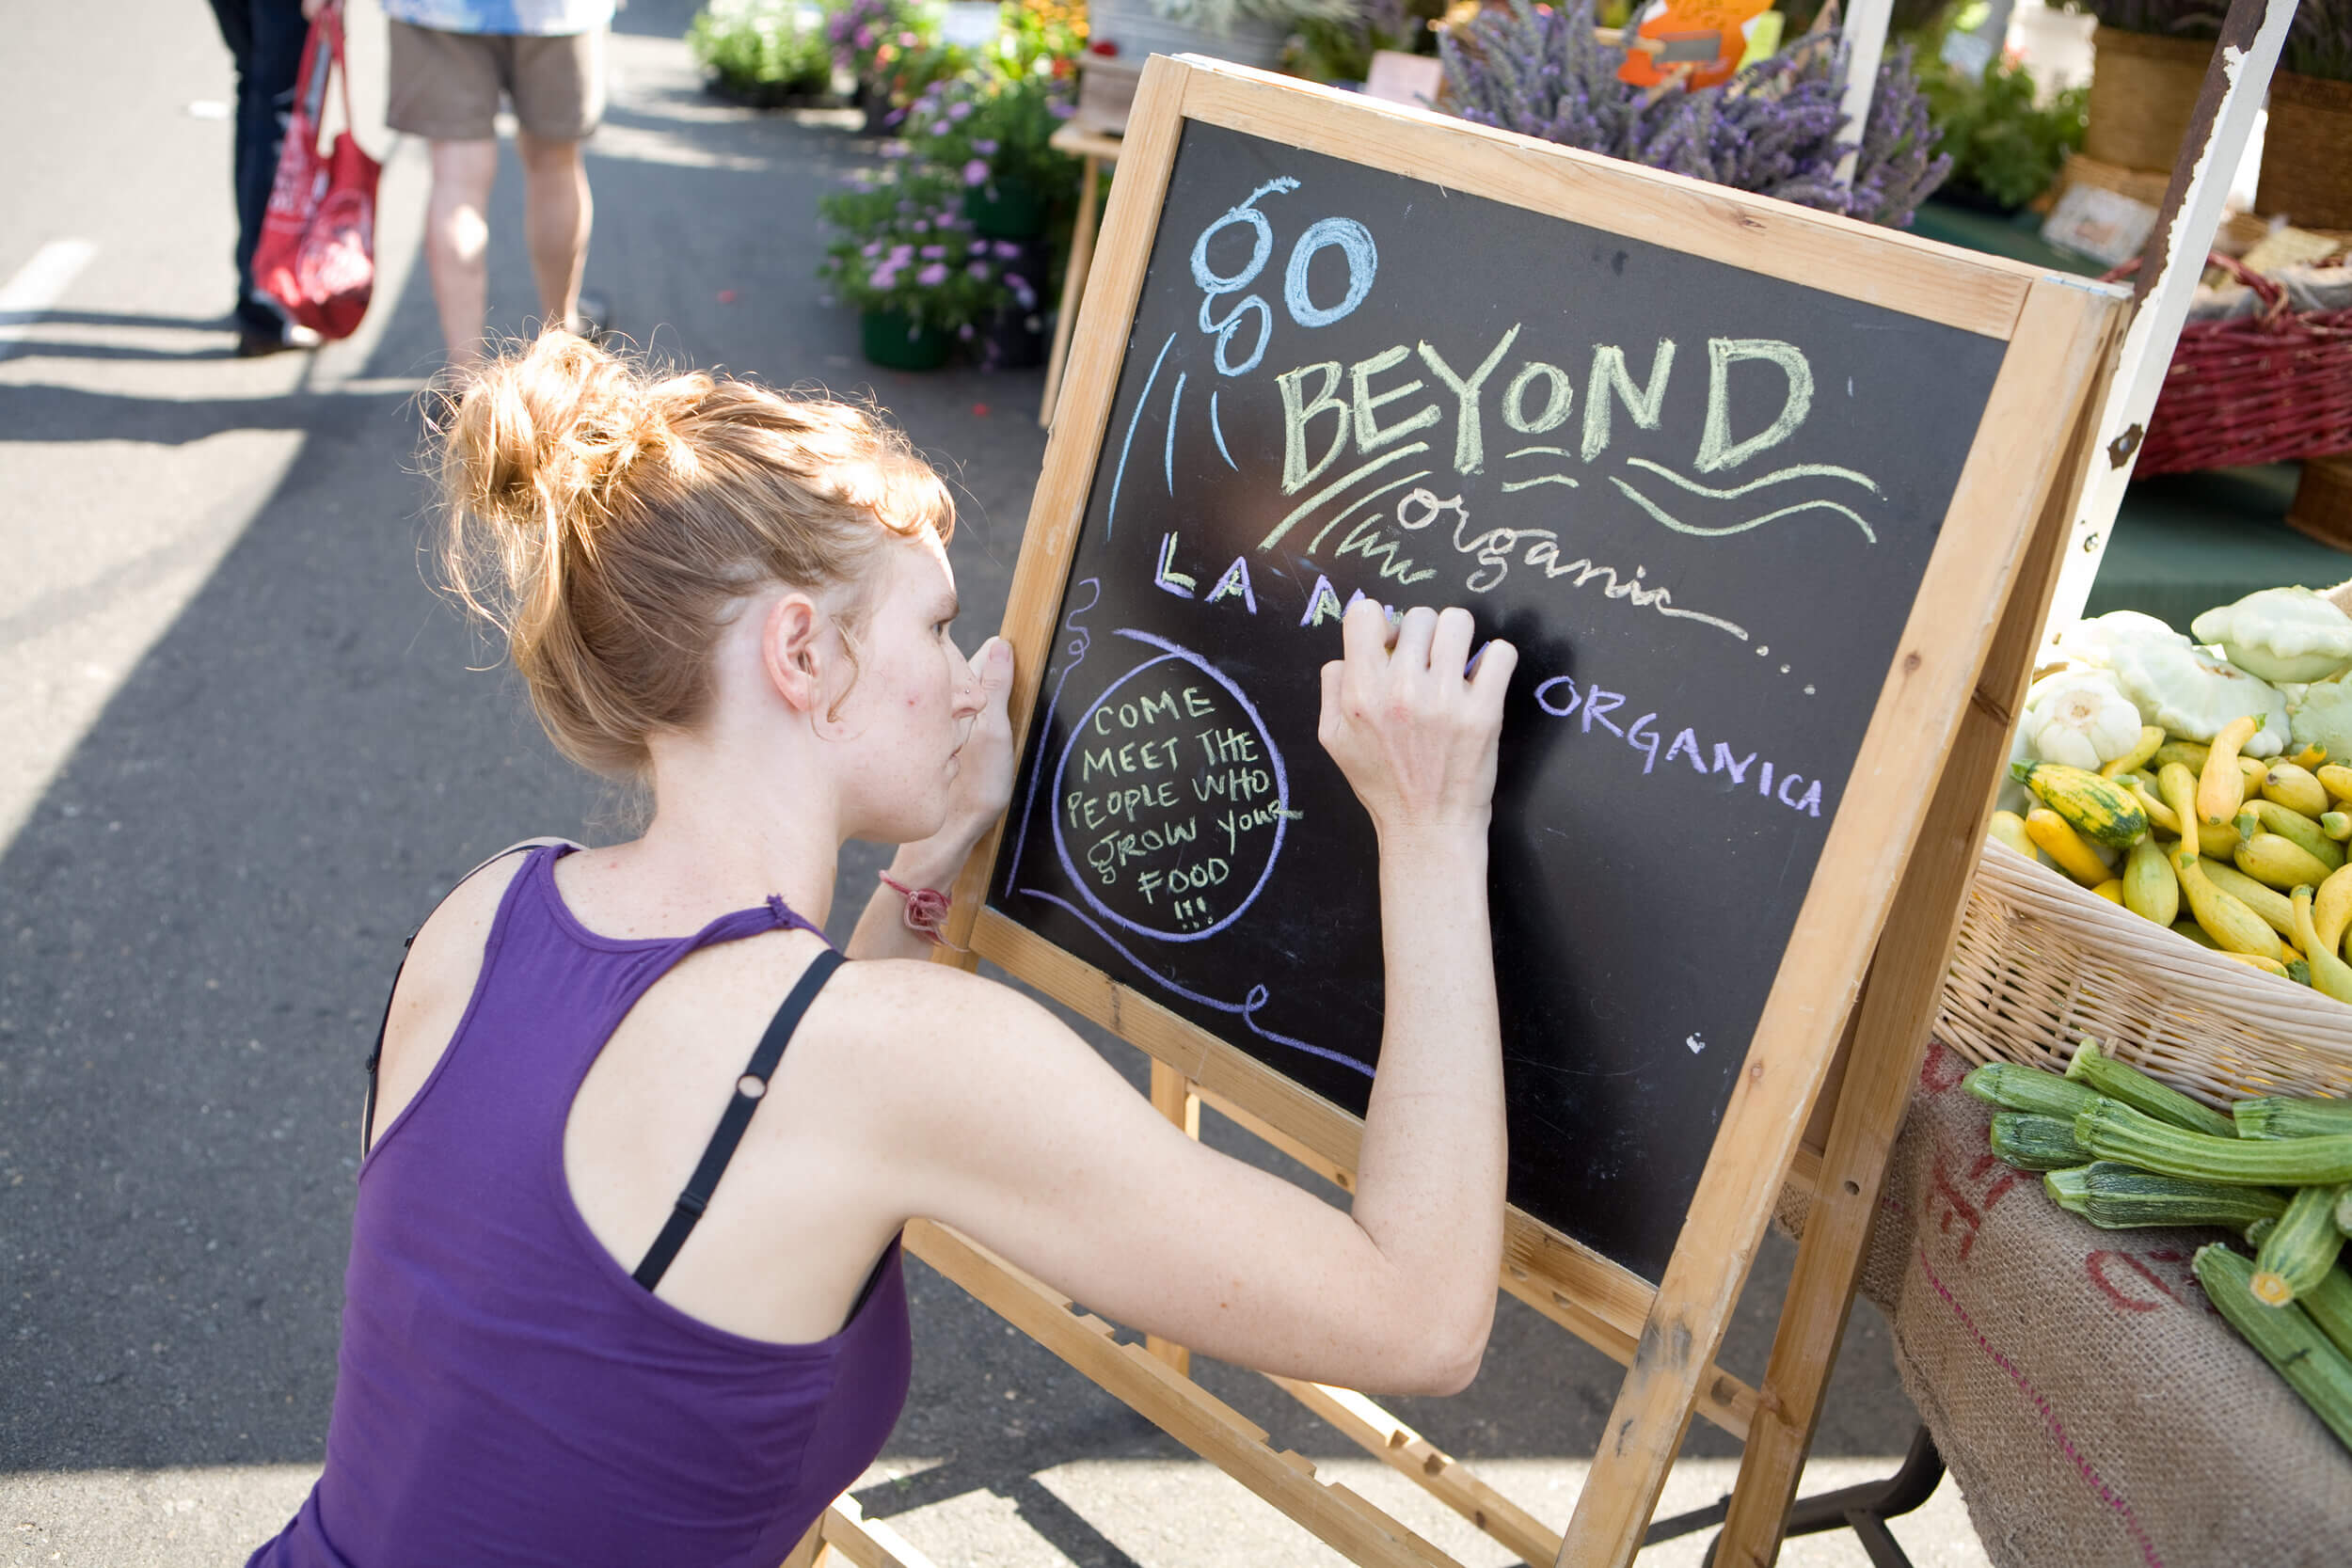 go
BEYOND
organic...
LA
ORGANICA
COME
MEET THE
PEOPLE WHO
GROW YOUR
FOOD
!!!